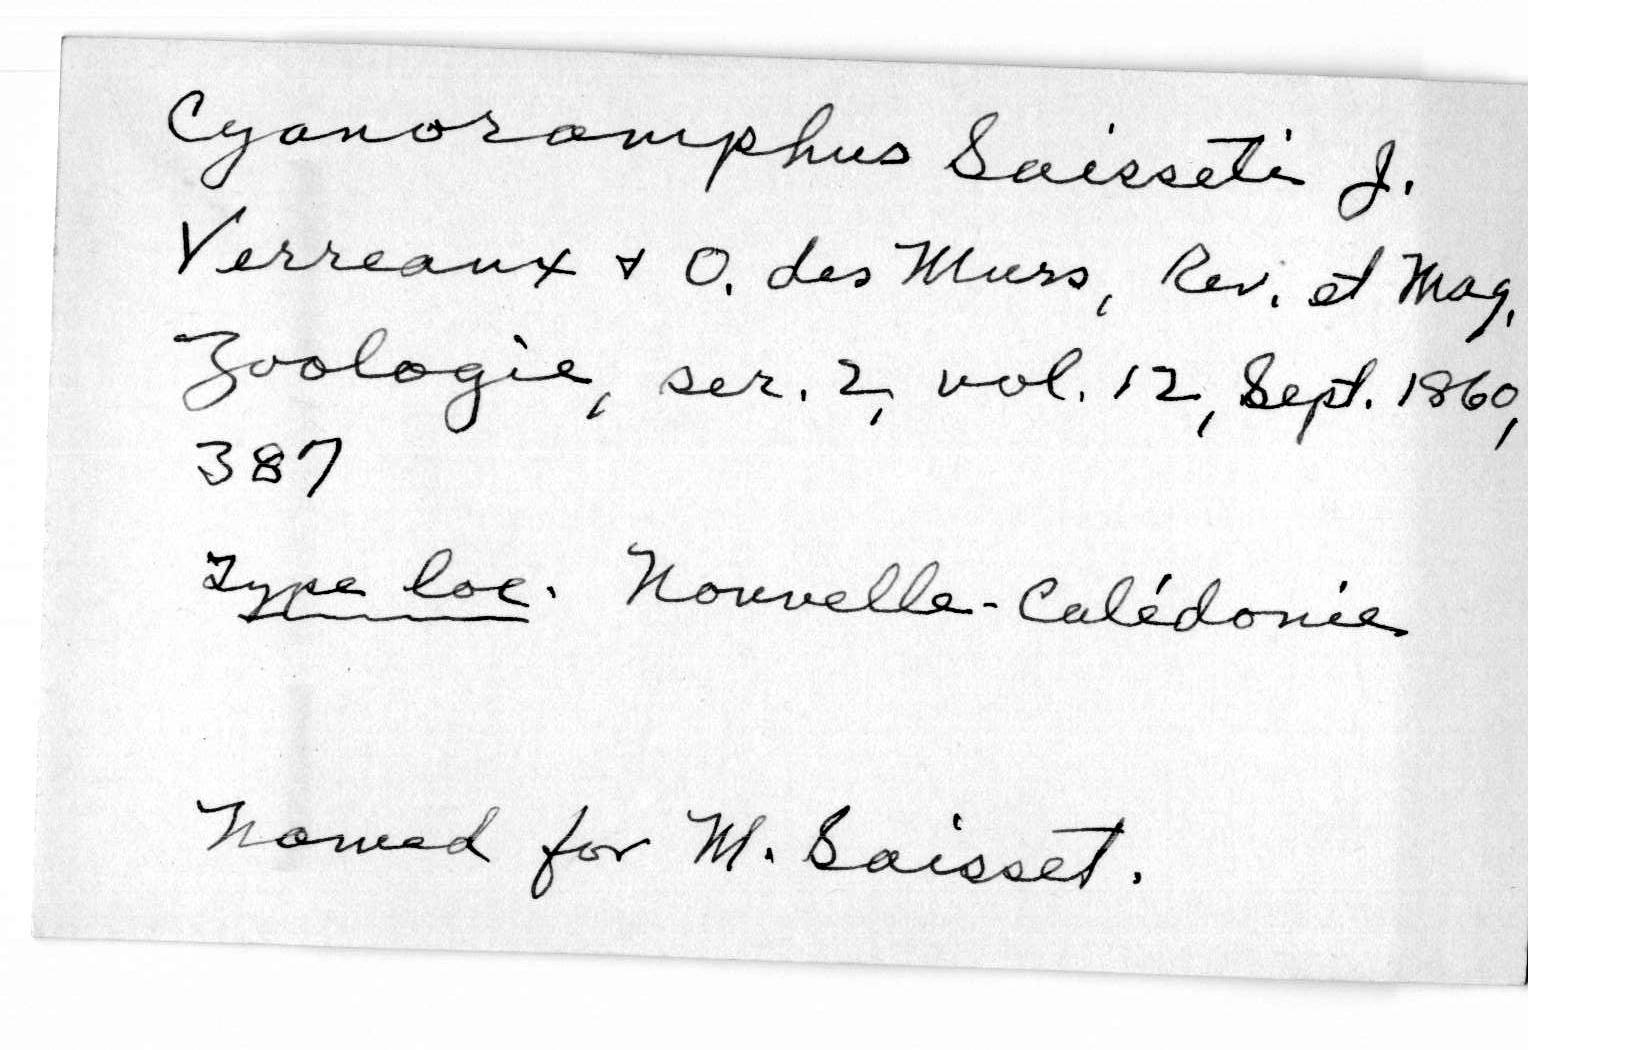 Cyanoramphus Saisseti J.
Verreaux & O. des Murs, Rev. et Mag.
Zoologie, ser. 2, vol. 12, Sept. 1860,
387
Type loc. Nouvelle-Calédonie
Named for M. Saisset.